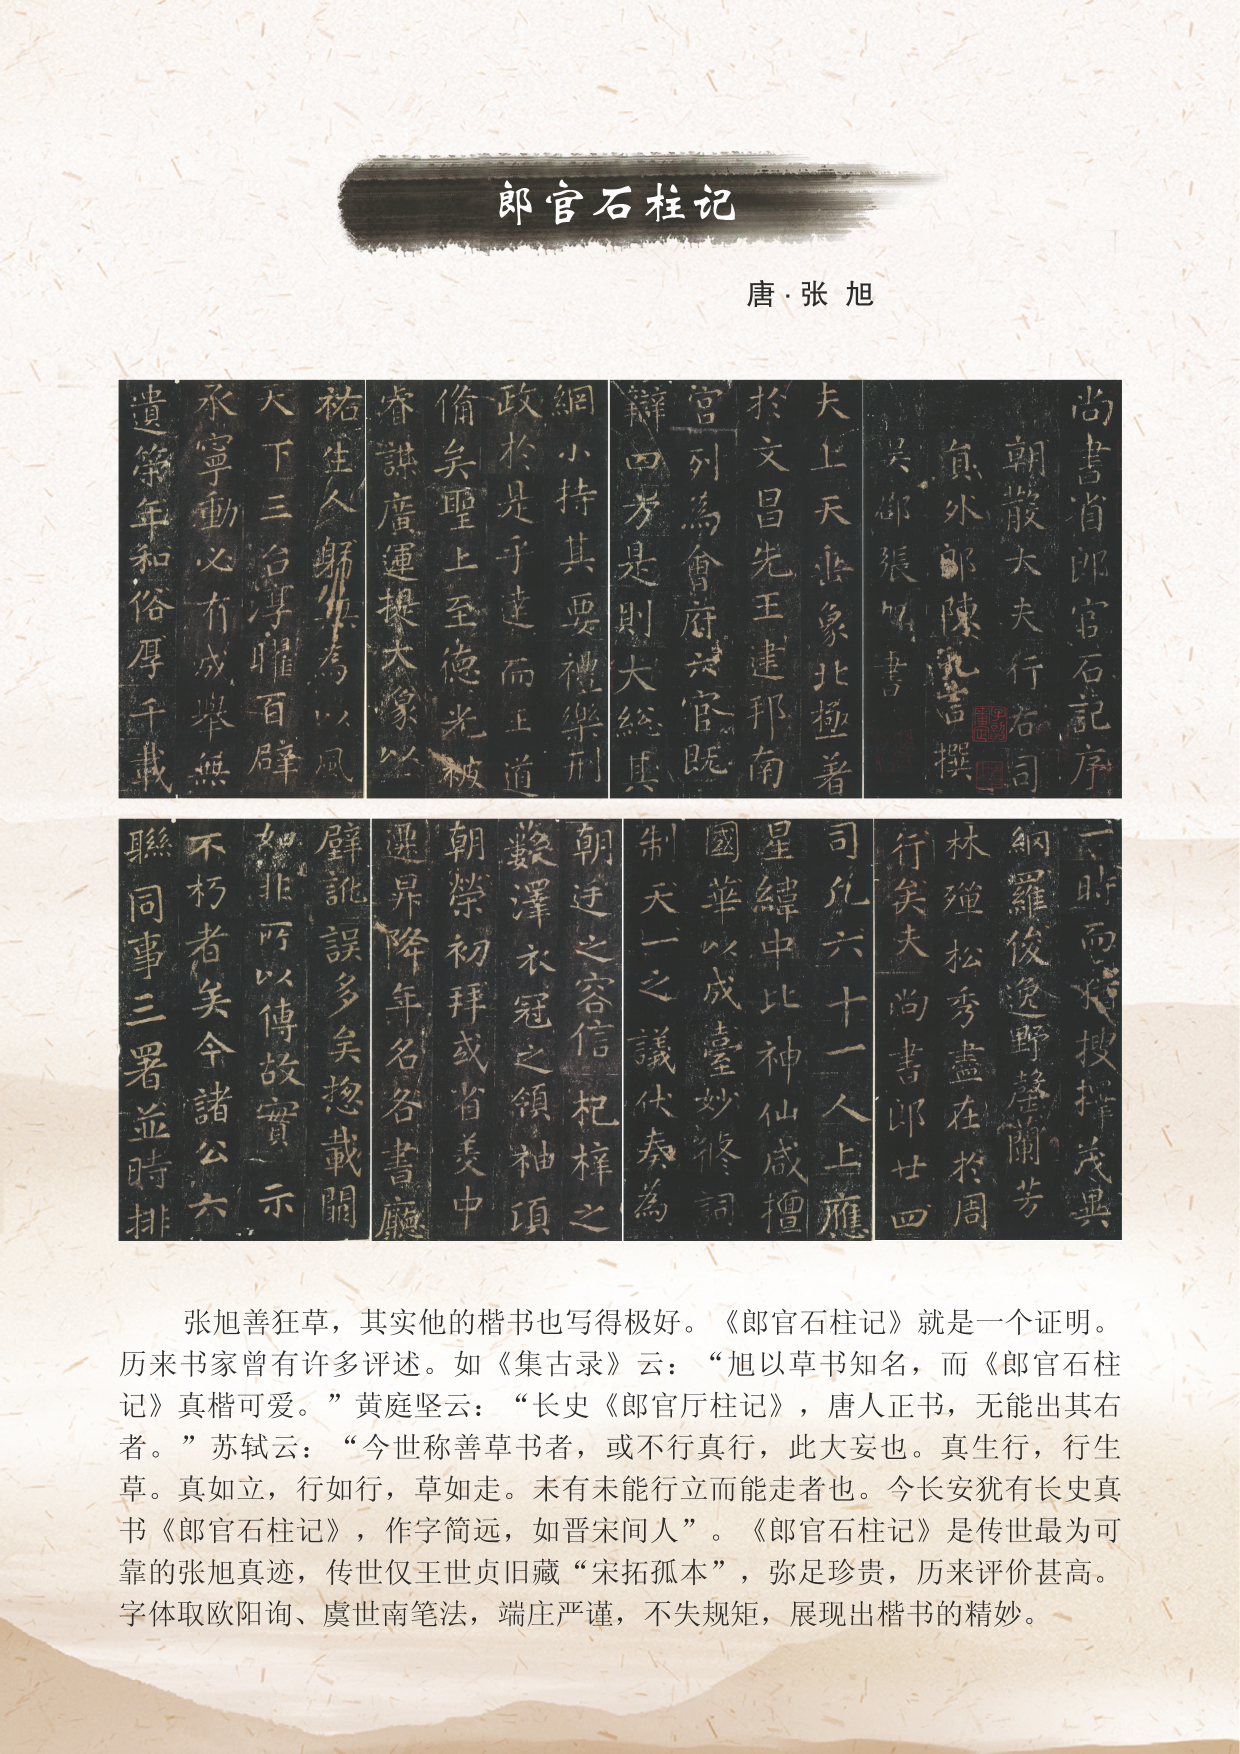 郎官石柱记
唐·张 旭
尚書省郎官石記序
朝散大夫行右司
員外郎陳九言撰
吳郡張旭書
夫上天垂象北極著
於文昌先王建邦南
宮列為會府六官既
辯四方是則大總其
綱小持其要禮樂刑
政於是乎達而王道
備矣聖上至德光被
睿謀廣運提大象以
祐生人躬無為以風
天下三台淳曜百辟
承寧動必有成舉無
遺策年和俗厚千載
一時而猶搜擇茂異
網羅俊逸野罄蘭芳
林殫松秀盡在於周
行矣夫尚書郎廿四
司凡六十一人上應
星緯中比神仙咸擅
國華以成臺妙修詞
制天一之議伏奏為
朝廷之容信杞梓之
藪澤衣冠之領袖頃
朝榮初拜或省美中
遷昇降年名各書廳
壁訛誤多矣揔載闕
如非所以傳故實示
不朽者矣今諸公六
聯同事三署並時排
张旭善狂草，其实他的楷书也写得极好。《郎官石柱记》就是一个证明。
历来书家曾有许多评述。如《集古录》云：“旭以草书知名，而《郎官石柱
记》真楷可爱。”黄庭坚云：“长史《郎官厅柱记》，唐人正书，无能出其右
者。”苏轼云：“今世称善草书者，或不行真行，此大妄也。真生行，行生
草。真如立，行如行，草如走。未有未能行立而能走者也。今长安犹有长史真
书《郎官石柱记》，作字简远，如晋宋间人”。《郎官石柱记》是传世最为可
靠的张旭真迹，传世仅王世贞旧藏“宋拓孤本”，弥足珍贵，历来评价甚高。
字体取欧阳询、虞世南笔法，端庄严谨，不失规矩，展现出楷书的精妙。